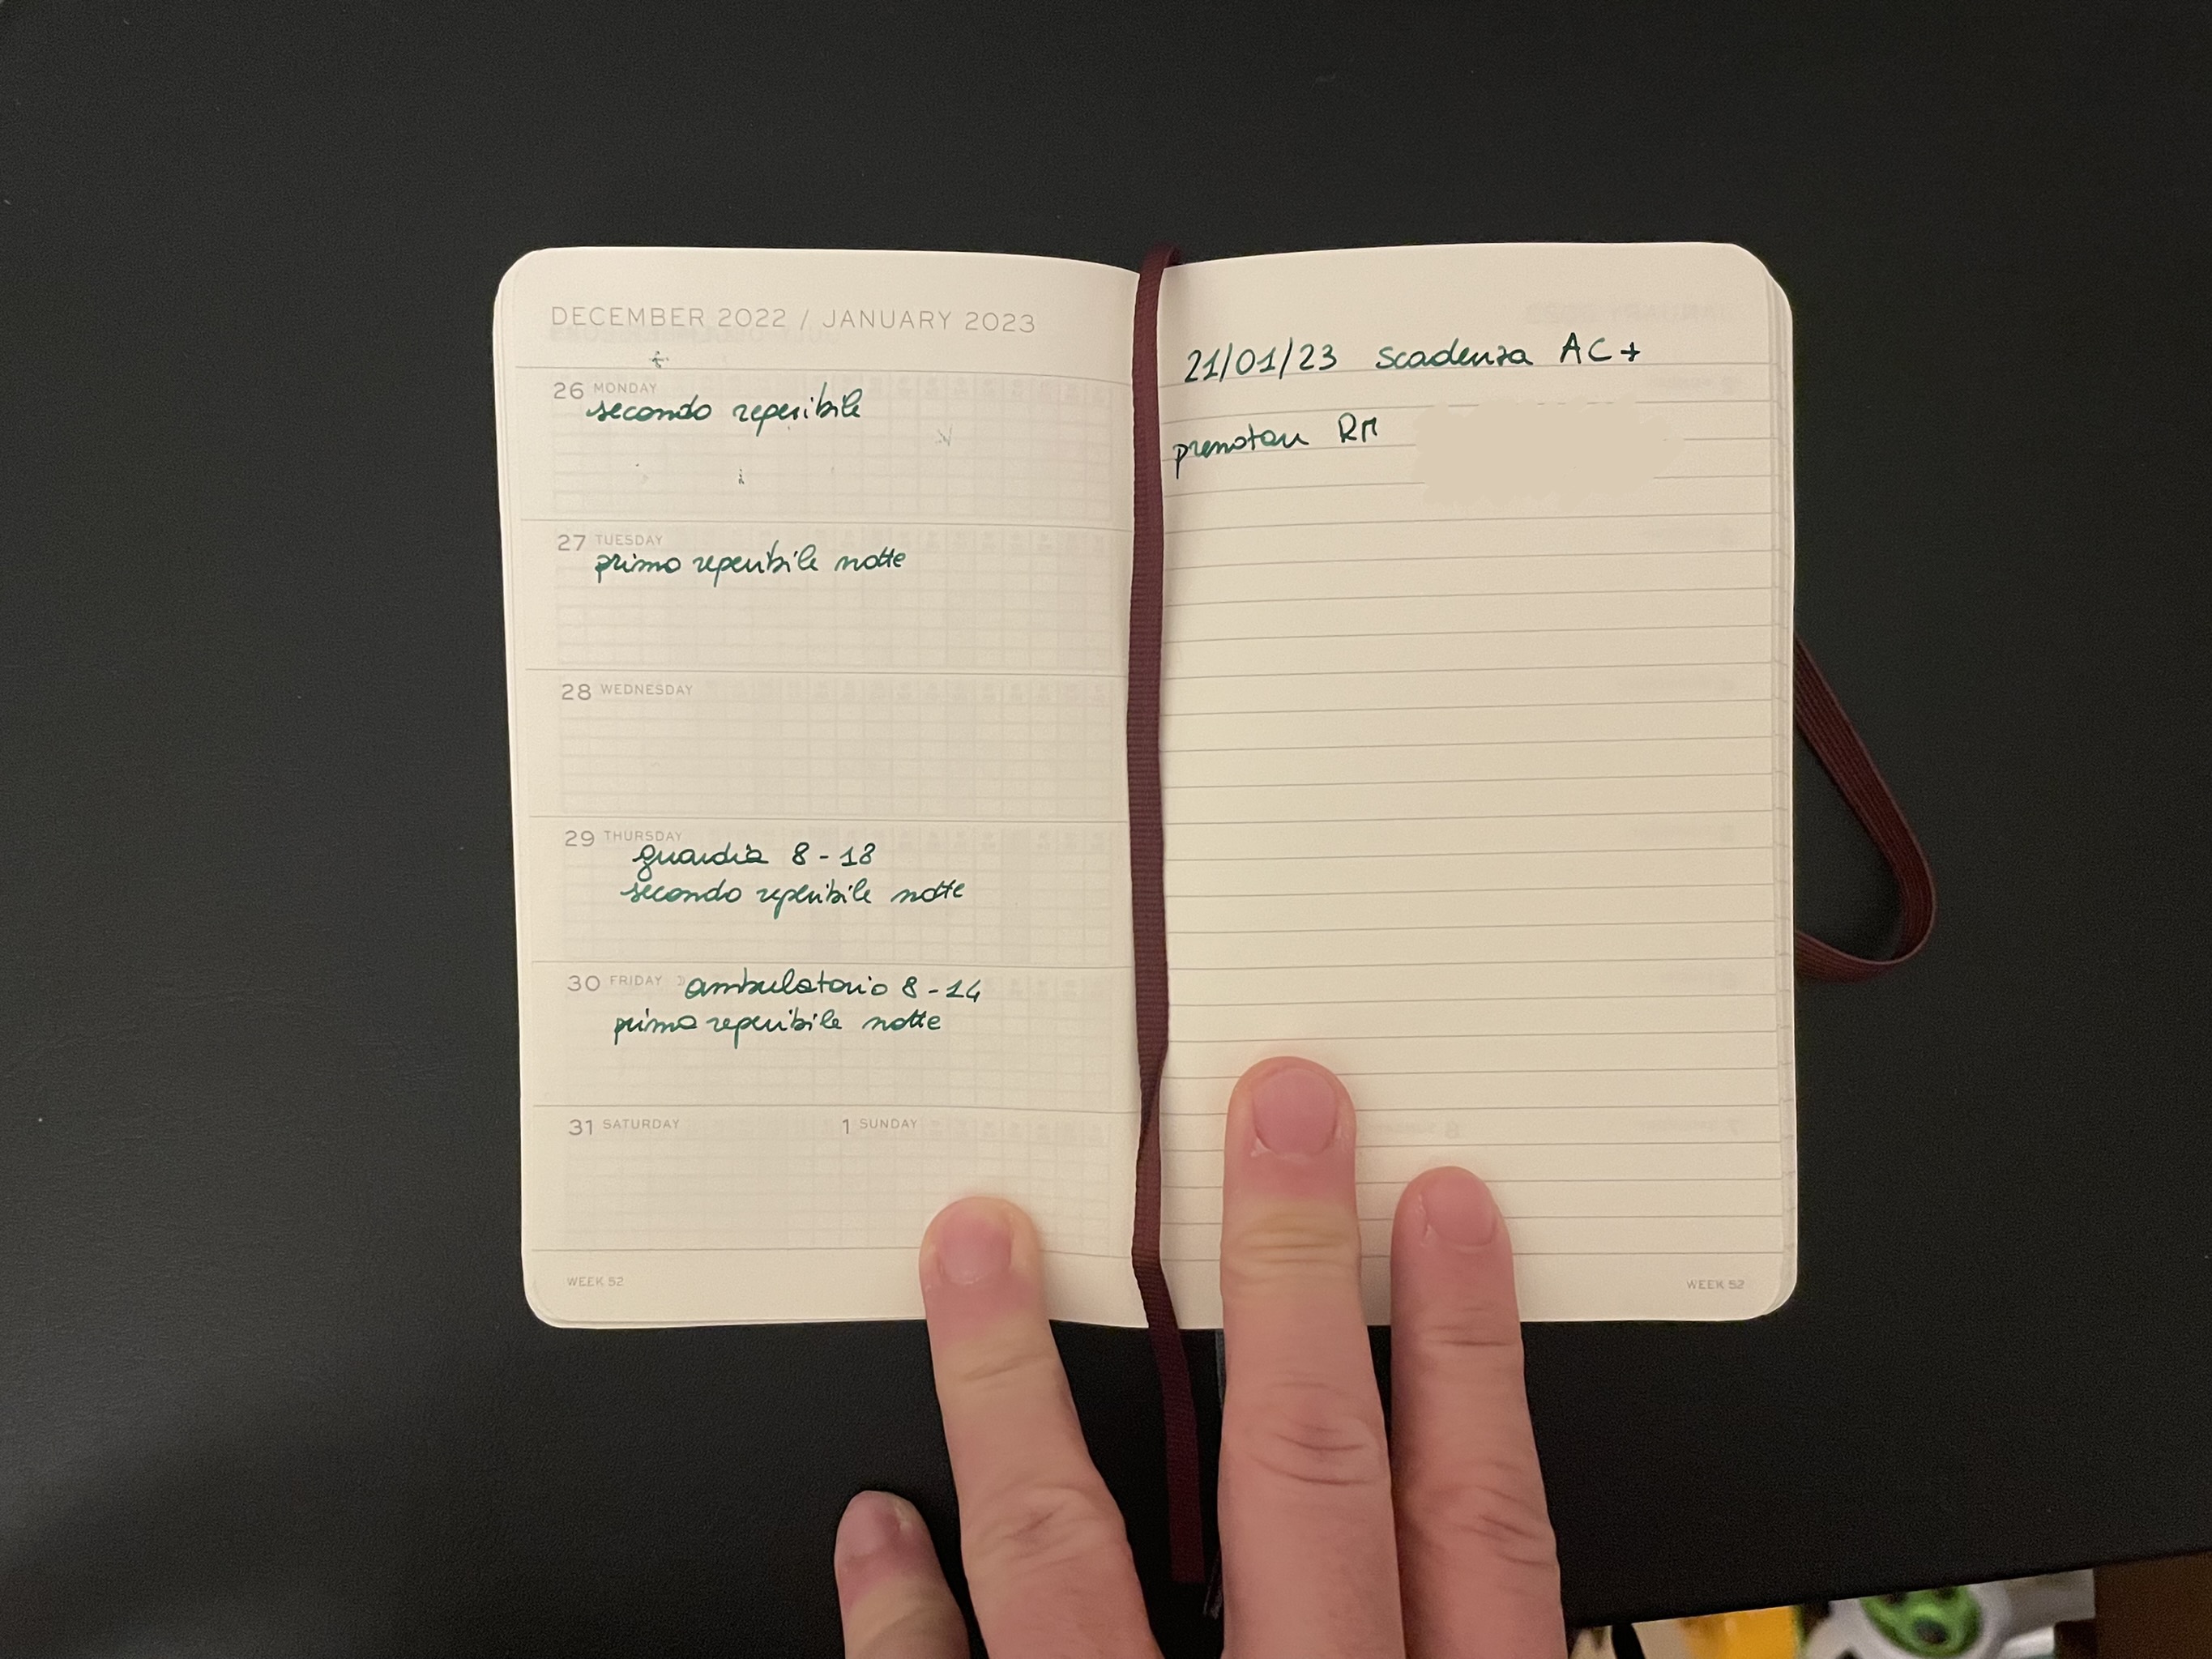 DECEMBER 2022 / JANUARY 2023
26 MONDAY
secondo reperibile
27 TUESDAY
primo reperibile notte
28 WEDNESDAY
29 THURSDAY
guardia 8 - 18
secondo reperibile notte
30 FRIDAY ambulatorio 8 - 14
primo reperibile notte
31 SATURDAY 1 SUNDAY
WEEK 52
21/01/23 scadenza AC+
prenotare RM
WEEK 52